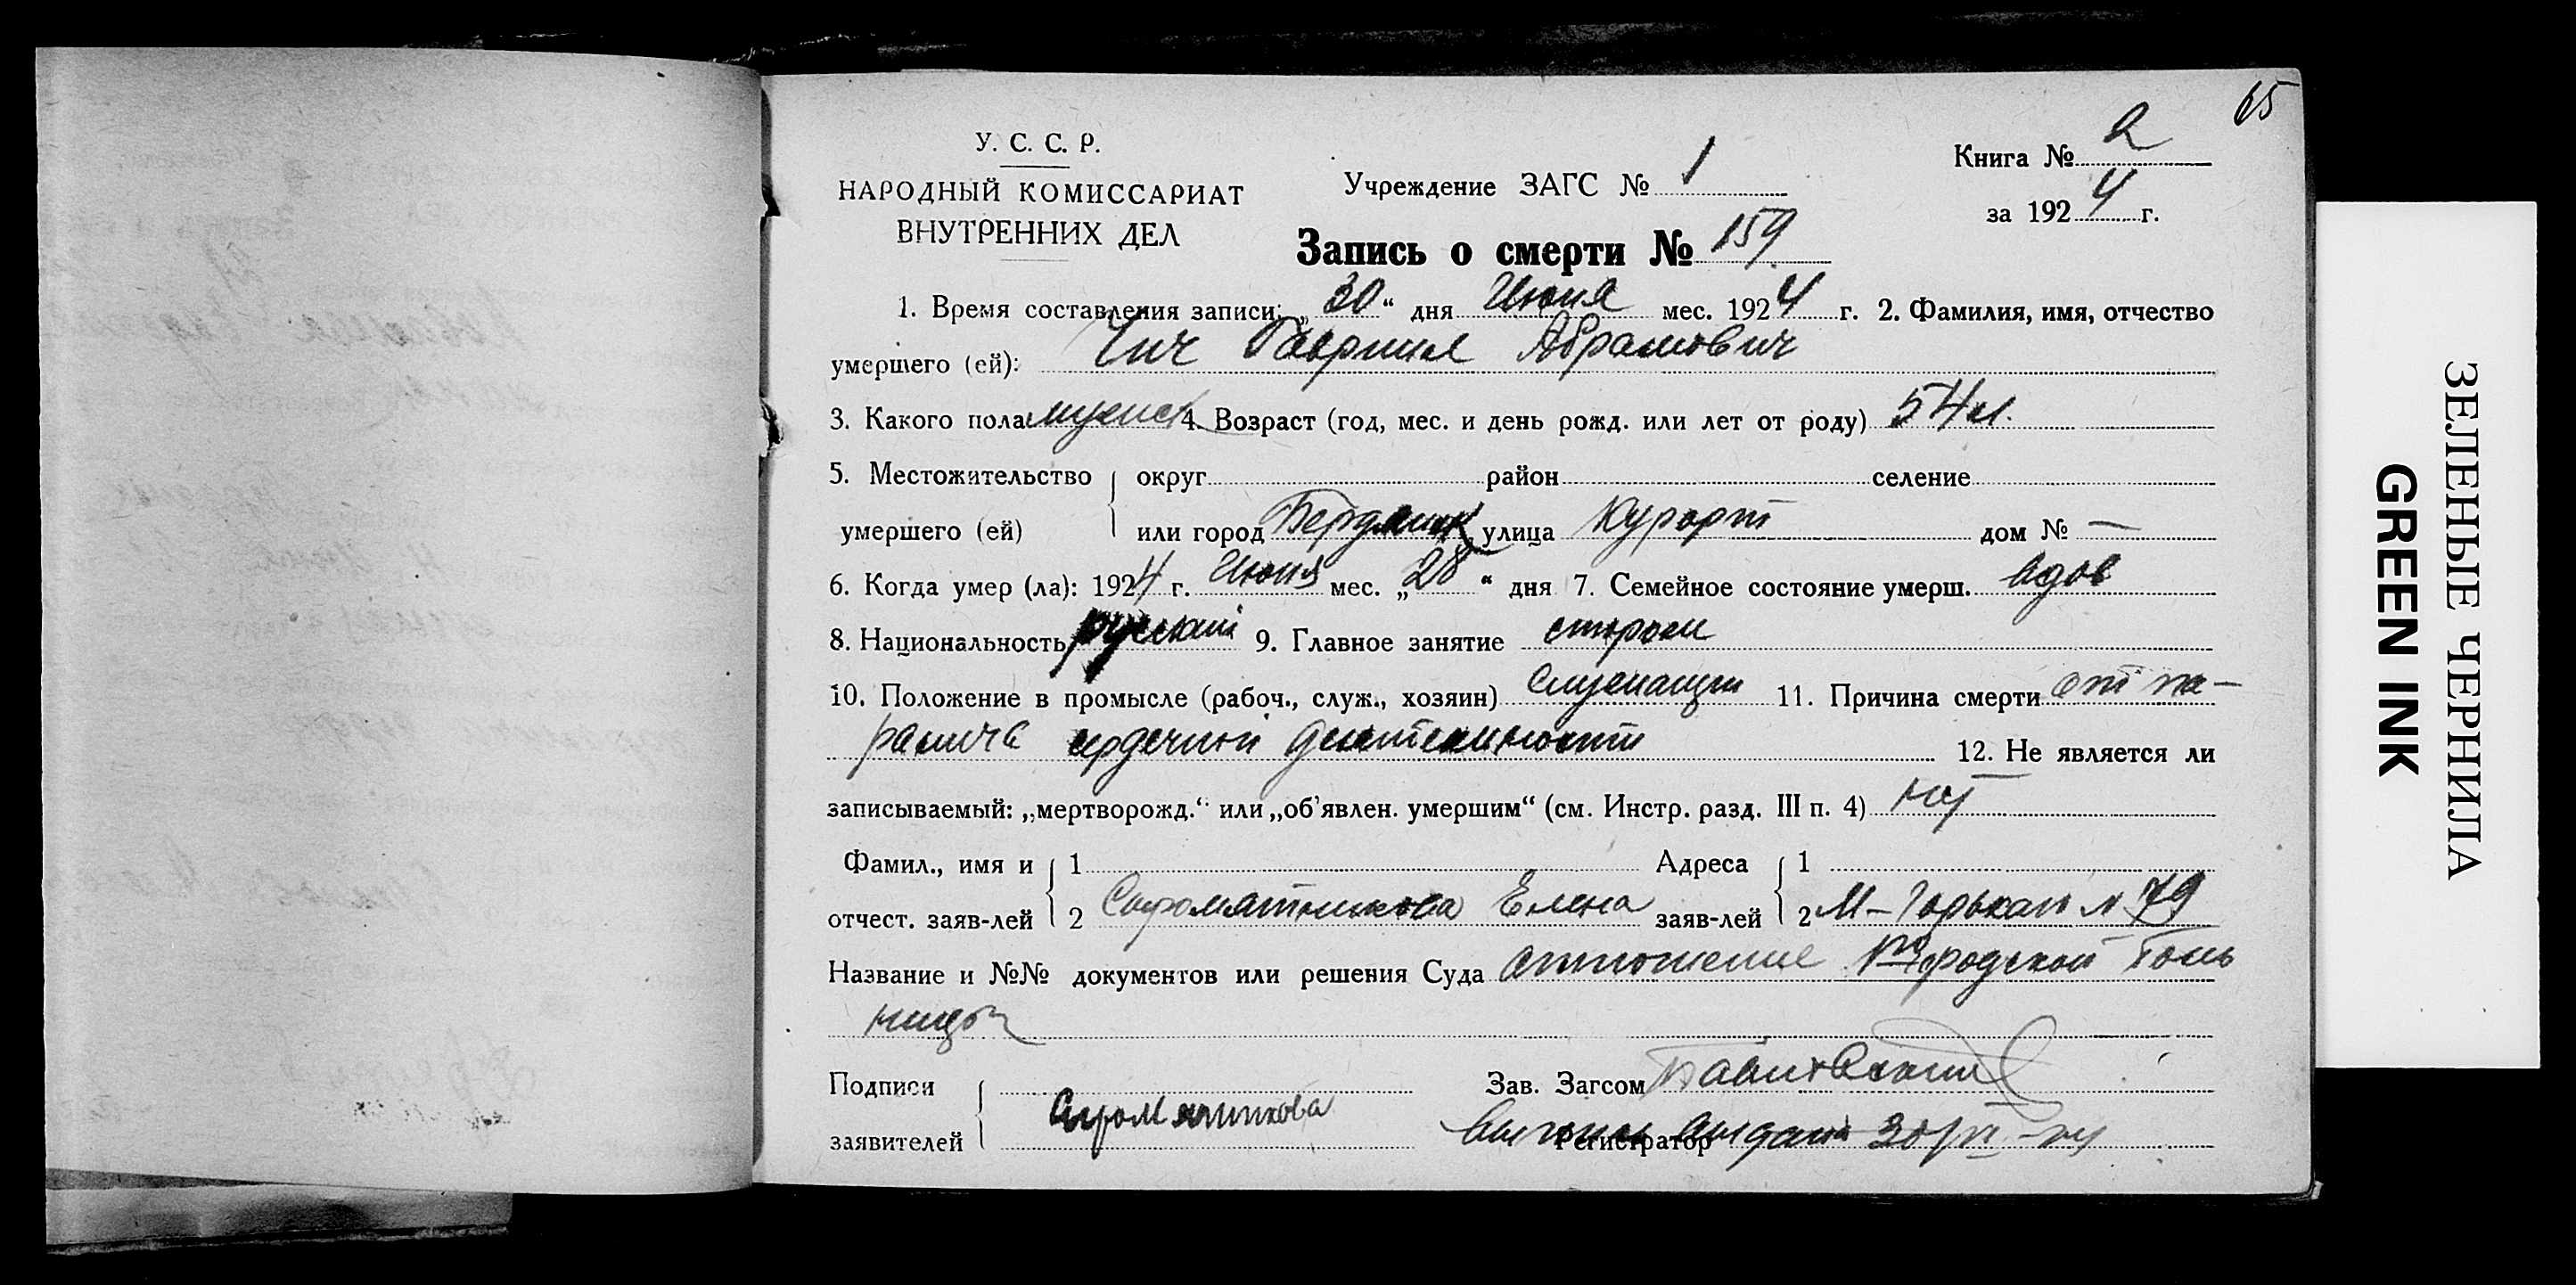 65
У. С. С. Р.
НАРОДНЫЙ КОМИССАРИАТ
ВНУТРЕННИХ ДЕЛ
Учреждение ЗАГС № 1
Книга № 2
за 1924 г.
Запись о смерти № 159
1. Время составления записи: „30“ дня Июня мес. 1924 г. 2. Фамилия, имя, отчество
умершего (ей): Чич Гавриил Абрамович
3. Какого пола мужск 4. Возраст (год, мес. и день рожд. или лет от роду) 54 л.
5. Местожительство округ район селение
умершего (ей) или город Бердянск улица Курорт дом № —
6. Когда умер (ла): 1924 г. Июня мес. „28“ дня 7. Семейное состояние умерш. вдов
8. Национальность русский 9. Главное занятие сторож
10. Положение в промысле (рабоч., служ., хозяин) Служащий 11. Причина смерти от па-
ралича сердечной деятельности 12. Не является ли
записываемый: „мертворожд.“ или „об'явлен. умершим“ (см. Инстр. разд. III п. 4) нет
Фамил., имя и 1 Адреса 1
отчест. заяв-лей 2 Сыромятникова Елена заяв-лей 2 М-Горькаго № 79
Название и №№ документов или решения Суда отношение Городской боль
ницы
Подписи Зав. Загсом
заявителей Сыромятникова Регистратор выдана
ЗЕЛЕНЫЕ ЧЕРНИЛА
GREEN INK